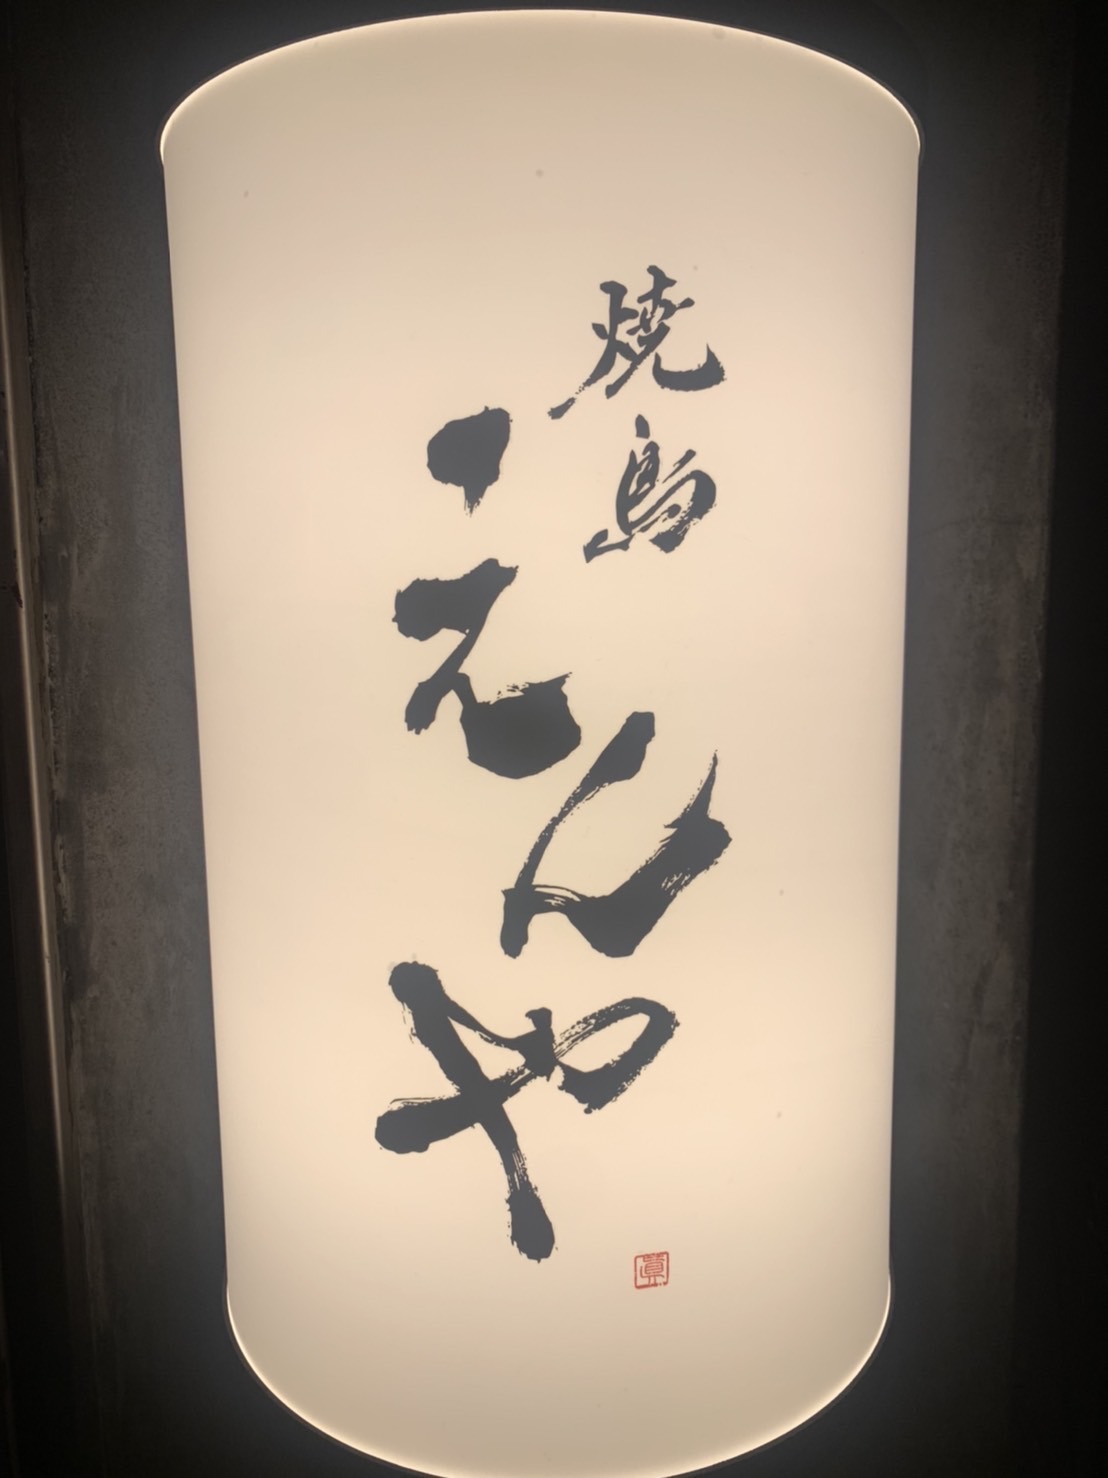 焼鳥
えんや
眞